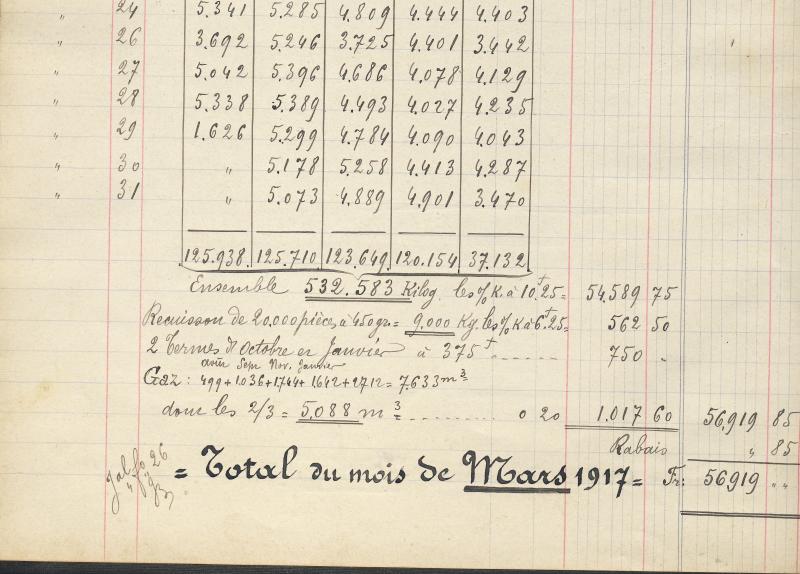 24 5.341 5.285 4.809 4.444 4.403
" 26 3.692 5.246 3.725 4.401 3.442
" 27 5.042 5.396 4.686 4.078 4.129
" 28 5.338 5.389 4.493 4.027 4.235
" 29 1.626 5.299 4.784 4.090 4.043
" 30 " 5.178 5.258 4.413 4.287
" 31 " 5.073 4.889 4.901 3.470
125.938. 125.710 123.649 120.154 37.132
Ensemble 532.583 Kilog. les % K. à 10f25= 54,589 75
Recuisson de 20.000 pièces à 450gr.= 9.000 Kg. les % K à 6f25= 562 50
2 Termes d'Octobre et Janvier à 375f ...... 750 "
Sep Nov. Janvier
Gaz: 499+1.036+1744+1.642+2.712= 7.633 m3
dont les 2/3 = 5.088 m3 .......... 0 20 1.017 60 56,919 85
Rabais " 85
= Total du mois de Mars 1917= Fr: 56919 " "